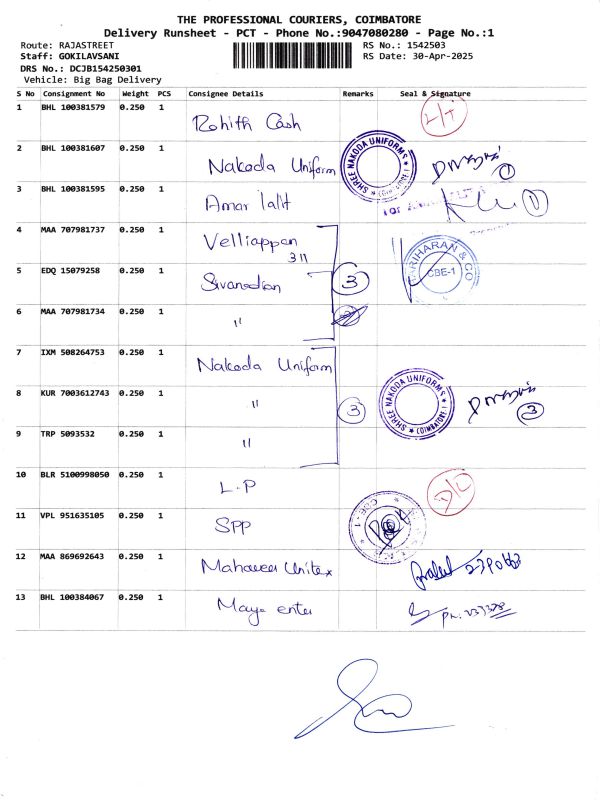 THE PROFESSIONAL COURIERS, COIMBATORE
Delivery Runsheet - PCT - Phone No.:9047080280 - Page No.:1
Route: RAJASTREET
RS No.: 1542503
Staff: GOKILAVSANI
RS Date: 30-Apr-2025
DRS No.: DCJB154250301
Vehicle: Big Bag Delivery
S No Consignment No Weight PCS Consignee Details Remarks Seal & Signature
1 BHL 100381579 0.250 1 Rohith Cash
2 BHL 100381607 0.250 1 Nakoda Uniform SHREE NAKODA UNIFORMS 1
3 BHL 100381595 0.250 1 Amar lalit 1
4 MAA 707981737 0.250 1 Velliappan
311
HARIHARAN & CO
CBE-1
5 EDQ 15079258 0.250 1 3
6 MAA 707981734 0.250 1 "
7 IXM 508264753 0.250 1 Nakoda Uniform
8 KUR 7003612743 0.250 1 " 3 SHREE NAKODA UNIFORMS (COIMBATORE) 3
9 TRP 5093532 0.250 1 "
10 BLR 5100998050 0.250 1 L.P D/C
11 VPL 951635105 0.250 1 SPP CBE-1
12 MAA 869692643 0.250 1 Mahaveer Unitex
13 BHL 100384067 0.250 1 Maya enter